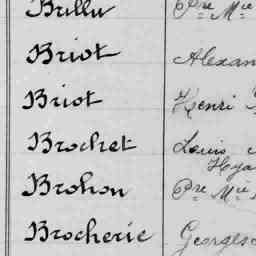 Brillu Pre Mie
Briot Alexan
Briot Henri
Brochet Louis
Hya
Brohon Pre Mie
Brocherie Georges